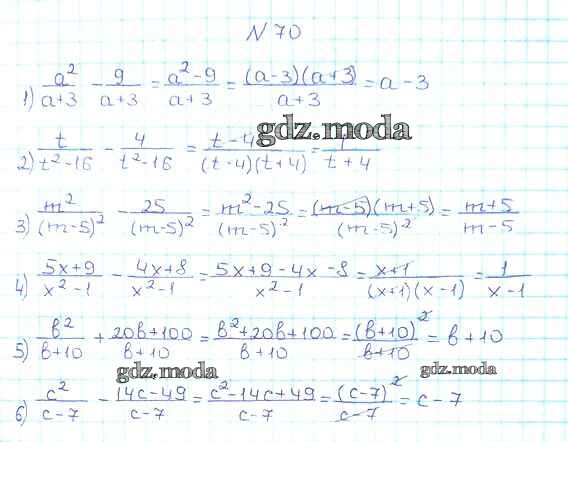 N 70
1) a²/(a+3) - 9/(a+3) = (a²-9)/(a+3) = (a-3)(a+3)/(a+3) = a-3
2) t/(t²-16) - 4/(t²-16) = (t-4)/((t-4)(t+4)) = 1/(t+4)
gdz.moda
3) m²/(m-5)² - 25/(m-5)² = (m²-25)/(m-5)² = (m-5)(m+5)/(m-5)² = (m+5)/(m-5)
4) (5x+9)/(x²-1) - (4x+8)/(x²-1) = (5x+9-4x-8)/(x²-1) = (x+1)/((x+1)(x-1)) = 1/(x-1)
5) b²/(b+10) + (20b+100)/(b+10) = (b²+20b+100)/(b+10) = (b+10)²/(b+10) = b+10
gdz.moda gdz.moda
6) c²/(c-7) - (14c-49)/(c-7) = (c²-14c+49)/(c-7) = (c-7)²/(c-7) = c-7